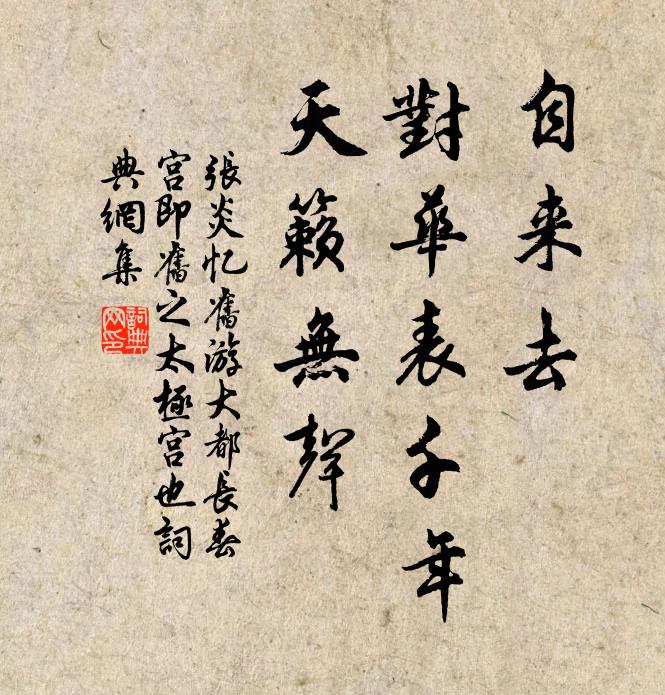 自来去
對華表千年
天籟無聲
張炎忆舊游大都長春
宫即舊之太極宫也詞
典網集
詞典
网印